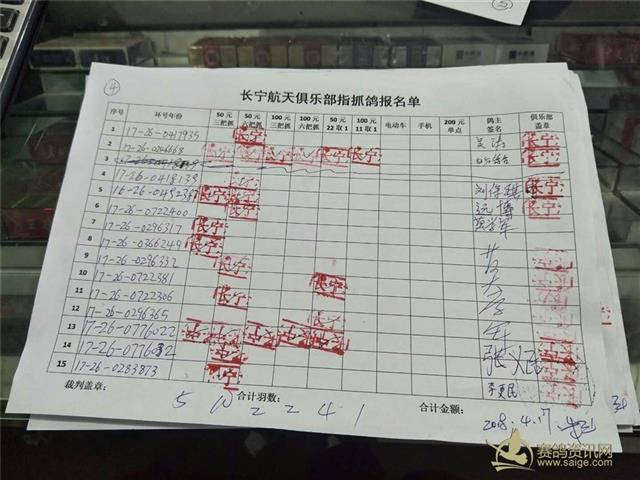 ④
长宁航天俱乐部指抓鸽报名单
序号 环号年份 50元三把抓 50元六把抓 100元三把抓 100元六把抓 50元22取1 100元11取1 电动车 手机 200元单点 鸽主签名 俱乐部盖章
1 17-26-0417935 长宁
2 17-26-0206668 长宁 长宁 长宁 长宁 长宁 长宁 长宁
3
4 17-26-0418139
5 16-26-0492367 长宁 长宁
6 17-26-0722400 长宁 长宁
7 17-26-0296317 长宁
8 17-26-0366249 长宁
9 17-26-0296332 长宁
10 17-26-0722381 长宁
11 17-26-0722306 长宁
12 17-26-0296365 长宁
13 17-26-0776022 长宁 长宁 长宁 长宁 长宁
14 张义民
15 17-26-0283873 长宁 李更民
裁判盖章: 合计羽数: 合计金额:
5 10 2 2 4 1 2018.4.17
赛鸽资讯网
www.saige.com